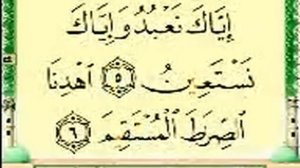 إِيَّاكَ نَعْبُدُ وَإِيَّاكَ
نَسْتَعِينُ ۝٥ ٱهْدِنَا
ٱلصِّرَٰطَ ٱلْمُسْتَقِيمَ ۝٦